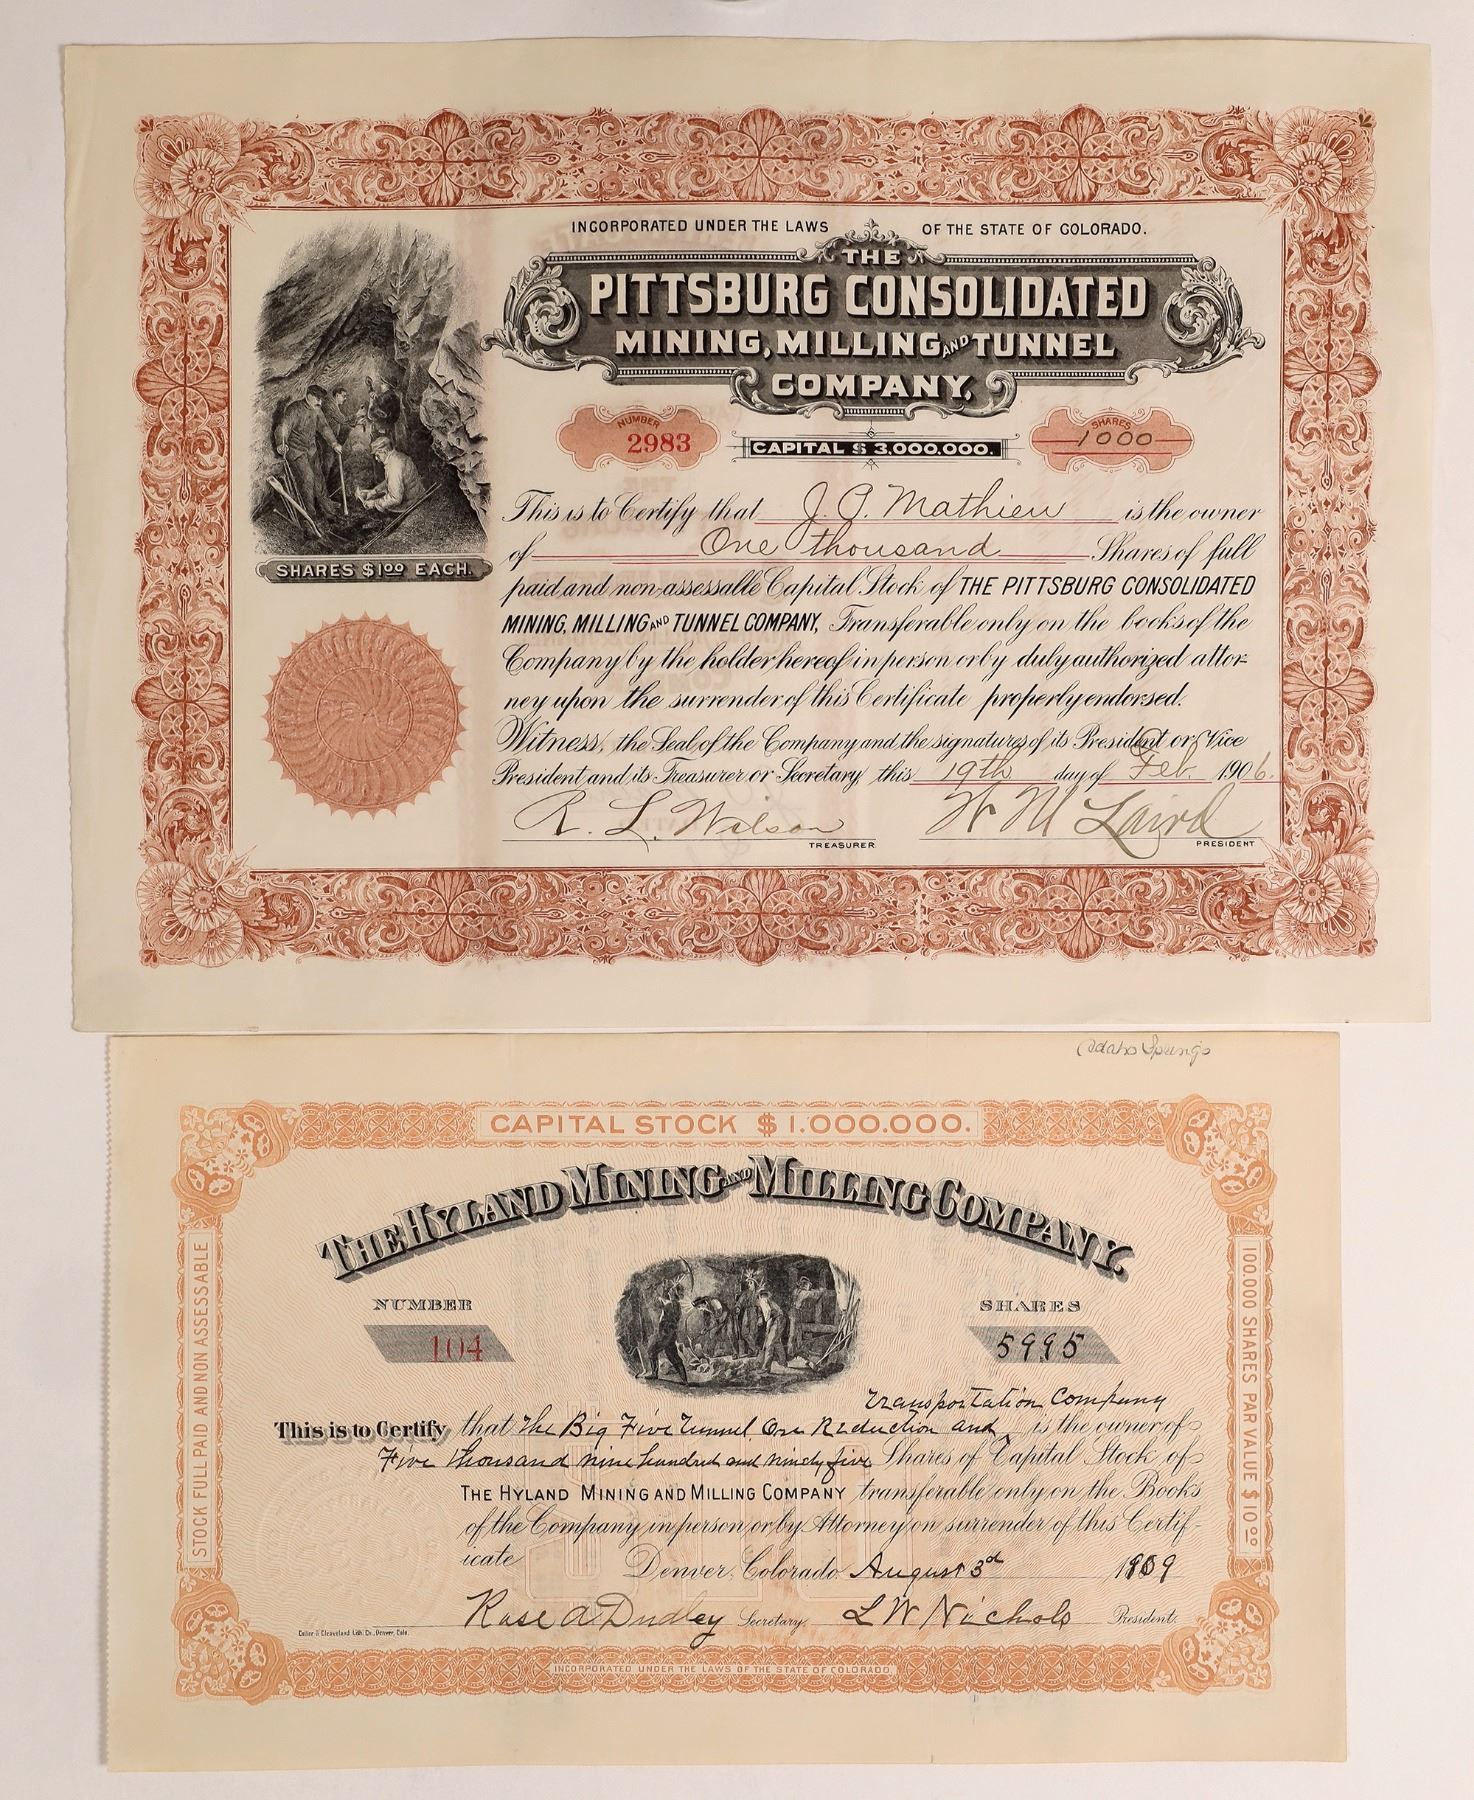 INCORPORATED UNDER THE LAWS OF THE STATE OF COLORADO.
THE
PITTSBURG CONSOLIDATED
MINING, MILLING AND TUNNEL
COMPANY.
NUMBER
2983
CAPITAL $ 3,000,000.
SHARES
1000
SHARES $1.00 EACH.
This is to Certify that J. P. Mathieu is the owner
of One thousand Shares of full
paid and non-assessable Capital Stock of THE PITTSBURG CONSOLIDATED
MINING, MILLING AND TUNNEL COMPANY, Transferable only on the books of the
Company by the holder hereof in person or by duly authorized attor-
ney upon the surrender of this Certificate properly endorsed.
Witness, the Seal of the Company and the signatures of its President or Vice
President and its Treasurer or Secretary this 19th day of Feb. 1906.
R. L. Wilson
W M Laird
TREASURER
PRESIDENT
Idaho Springs
CAPITAL STOCK $ 1.000.000.
THE HYLAND MINING AND MILLING COMPANY.
STOCK FULL PAID AND NON ASSESSABLE
100.000 SHARES PAR VALUE $ 10.00
NUMBER
104
SHARES
5995
Transportation Company
This is to Certify that The Big Five Tunnel Ore Reduction and is the owner of
Five Thousand nine hundred and ninety five Shares of Capital Stock of
THE HYLAND MINING AND MILLING COMPANY transferable only on the Books
of the Company in person or by Attorney on surrender of this Certif-
icate Denver, Colorado August 3d
Rose A Dudley Secretary. L W Nichols President.
INCORPORATED UNDER THE LAWS OF THE STATE OF COLORADO.